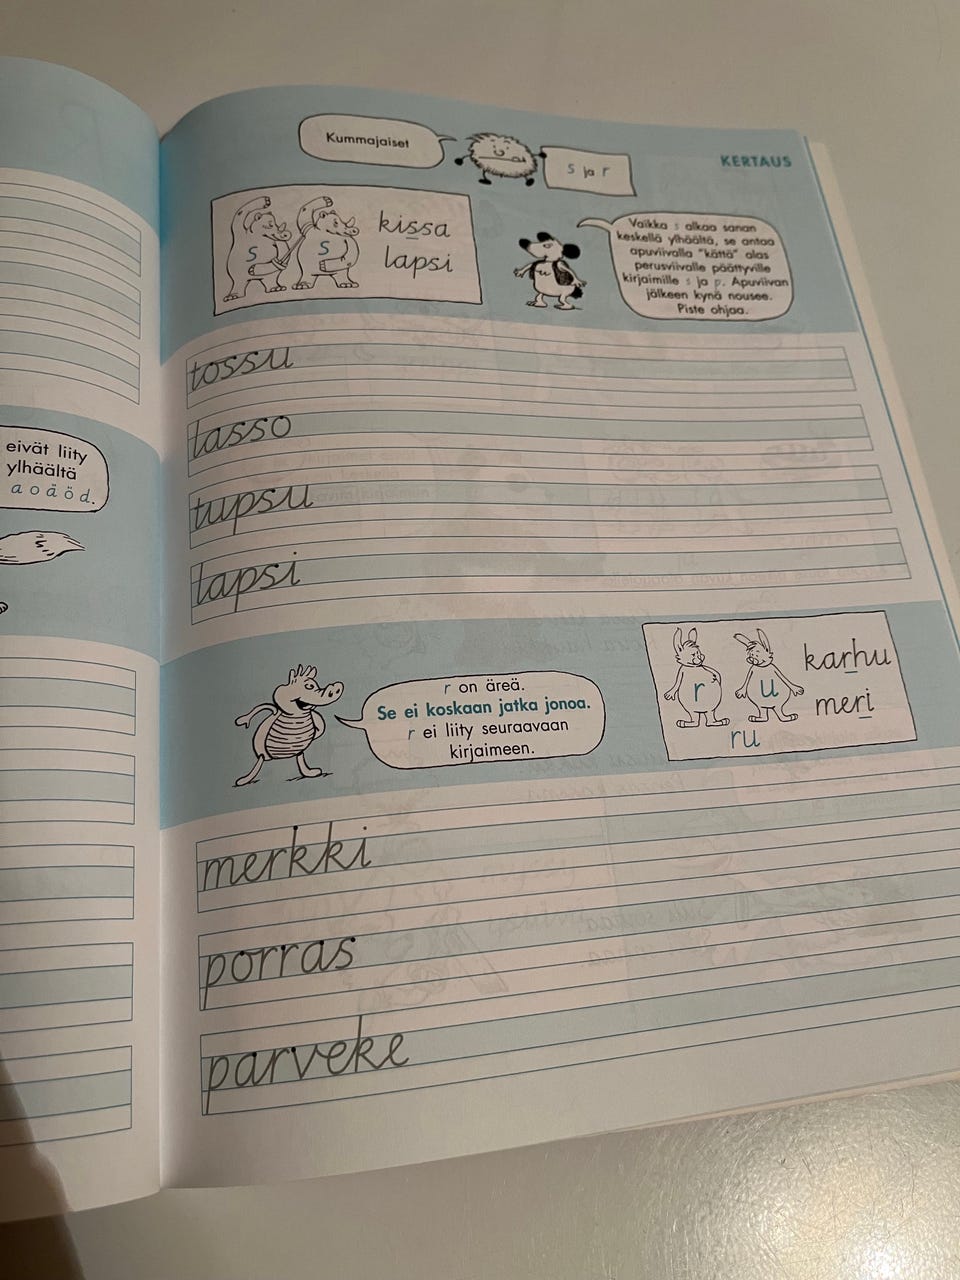 Kummajaiset
s ja r
KERTAUS
s
s
kissa
lapsi
u
Vaikka s alkaa sanan
keskellä ylhäältä, se antaa
apuviivalla "kättä" alas
perusviivalle päättyville
kirjaimille s ja p. Apuviivan
jälkeen kynä nousee.
Piste ohjaa.
tossu
lasso
tupsu
lapsi
eivät liity
ylhäältä
a o ä ö d.
r on äreä.
Se ei koskaan jatka jonoa.
r ei liity seuraavaan
kirjaimeen.
r
u
ru
karhu
meri
merkki
porras
parveke